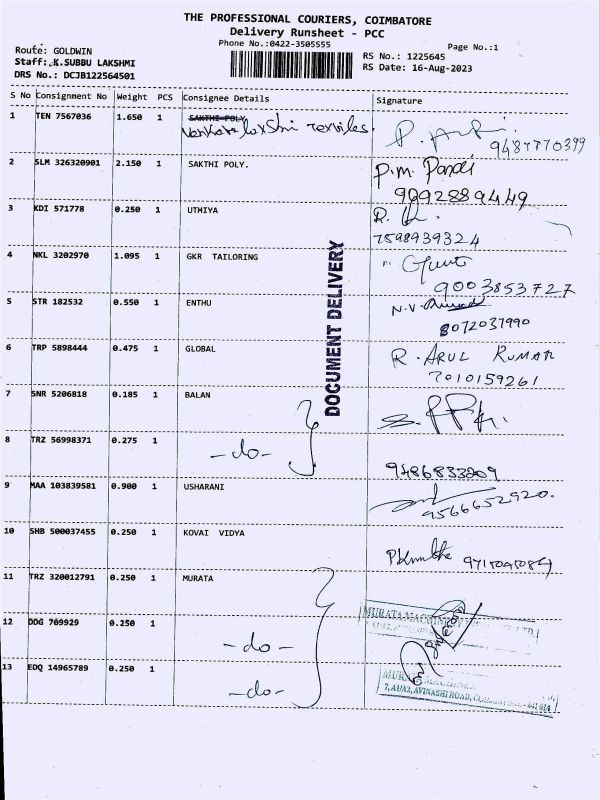 THE PROFESSIONAL COURIERS, COIMBATORE
Delivery Runsheet - PCC
Phone No.:0422-3505555
Page No.:1
Route: GOLDWIN
Staff: K.SUBBU LAKSHMI
DRS No.: DCJB122564501
RS No.: 1225645
RS Date: 16-Aug-2023
S No Consignment No Weight PCS Consignee Details Signature
1 TEN 7567036 1.650 1 SAKTHI POLY
9487770399
2 SLM 326320901 2.150 1 SAKTHI POLY. P.m.
9092889449
3 KDI 571778 0.250 1 UTHIYA R.
7598939324
4 NKL 3202970 1.095 1 GKR TAILORING
9003853727
5 STR 182532 0.550 1 ENTHU N.V.
8072037990
6 TRP 5898444 0.475 1 GLOBAL R. ARUL KUMAR
7010159261
7 SNR 5206818 0.185 1 BALAN
8 TRZ 56998371 0.275 1 -do-
9486833209
9 MAA 103839581 0.900 1 USHARANI
9566652920.
10 SHB 500037455 0.250 1 KOVAI VIDYA
11 TRZ 320012791 0.250 1 MURATA
12 DDG 709929 0.250 1 -do-
13 EDQ 14965789 0.250 1 -do-
DOCUMENT DELIVERY
MURATA MACHINERY
AVINASHI ROAD,